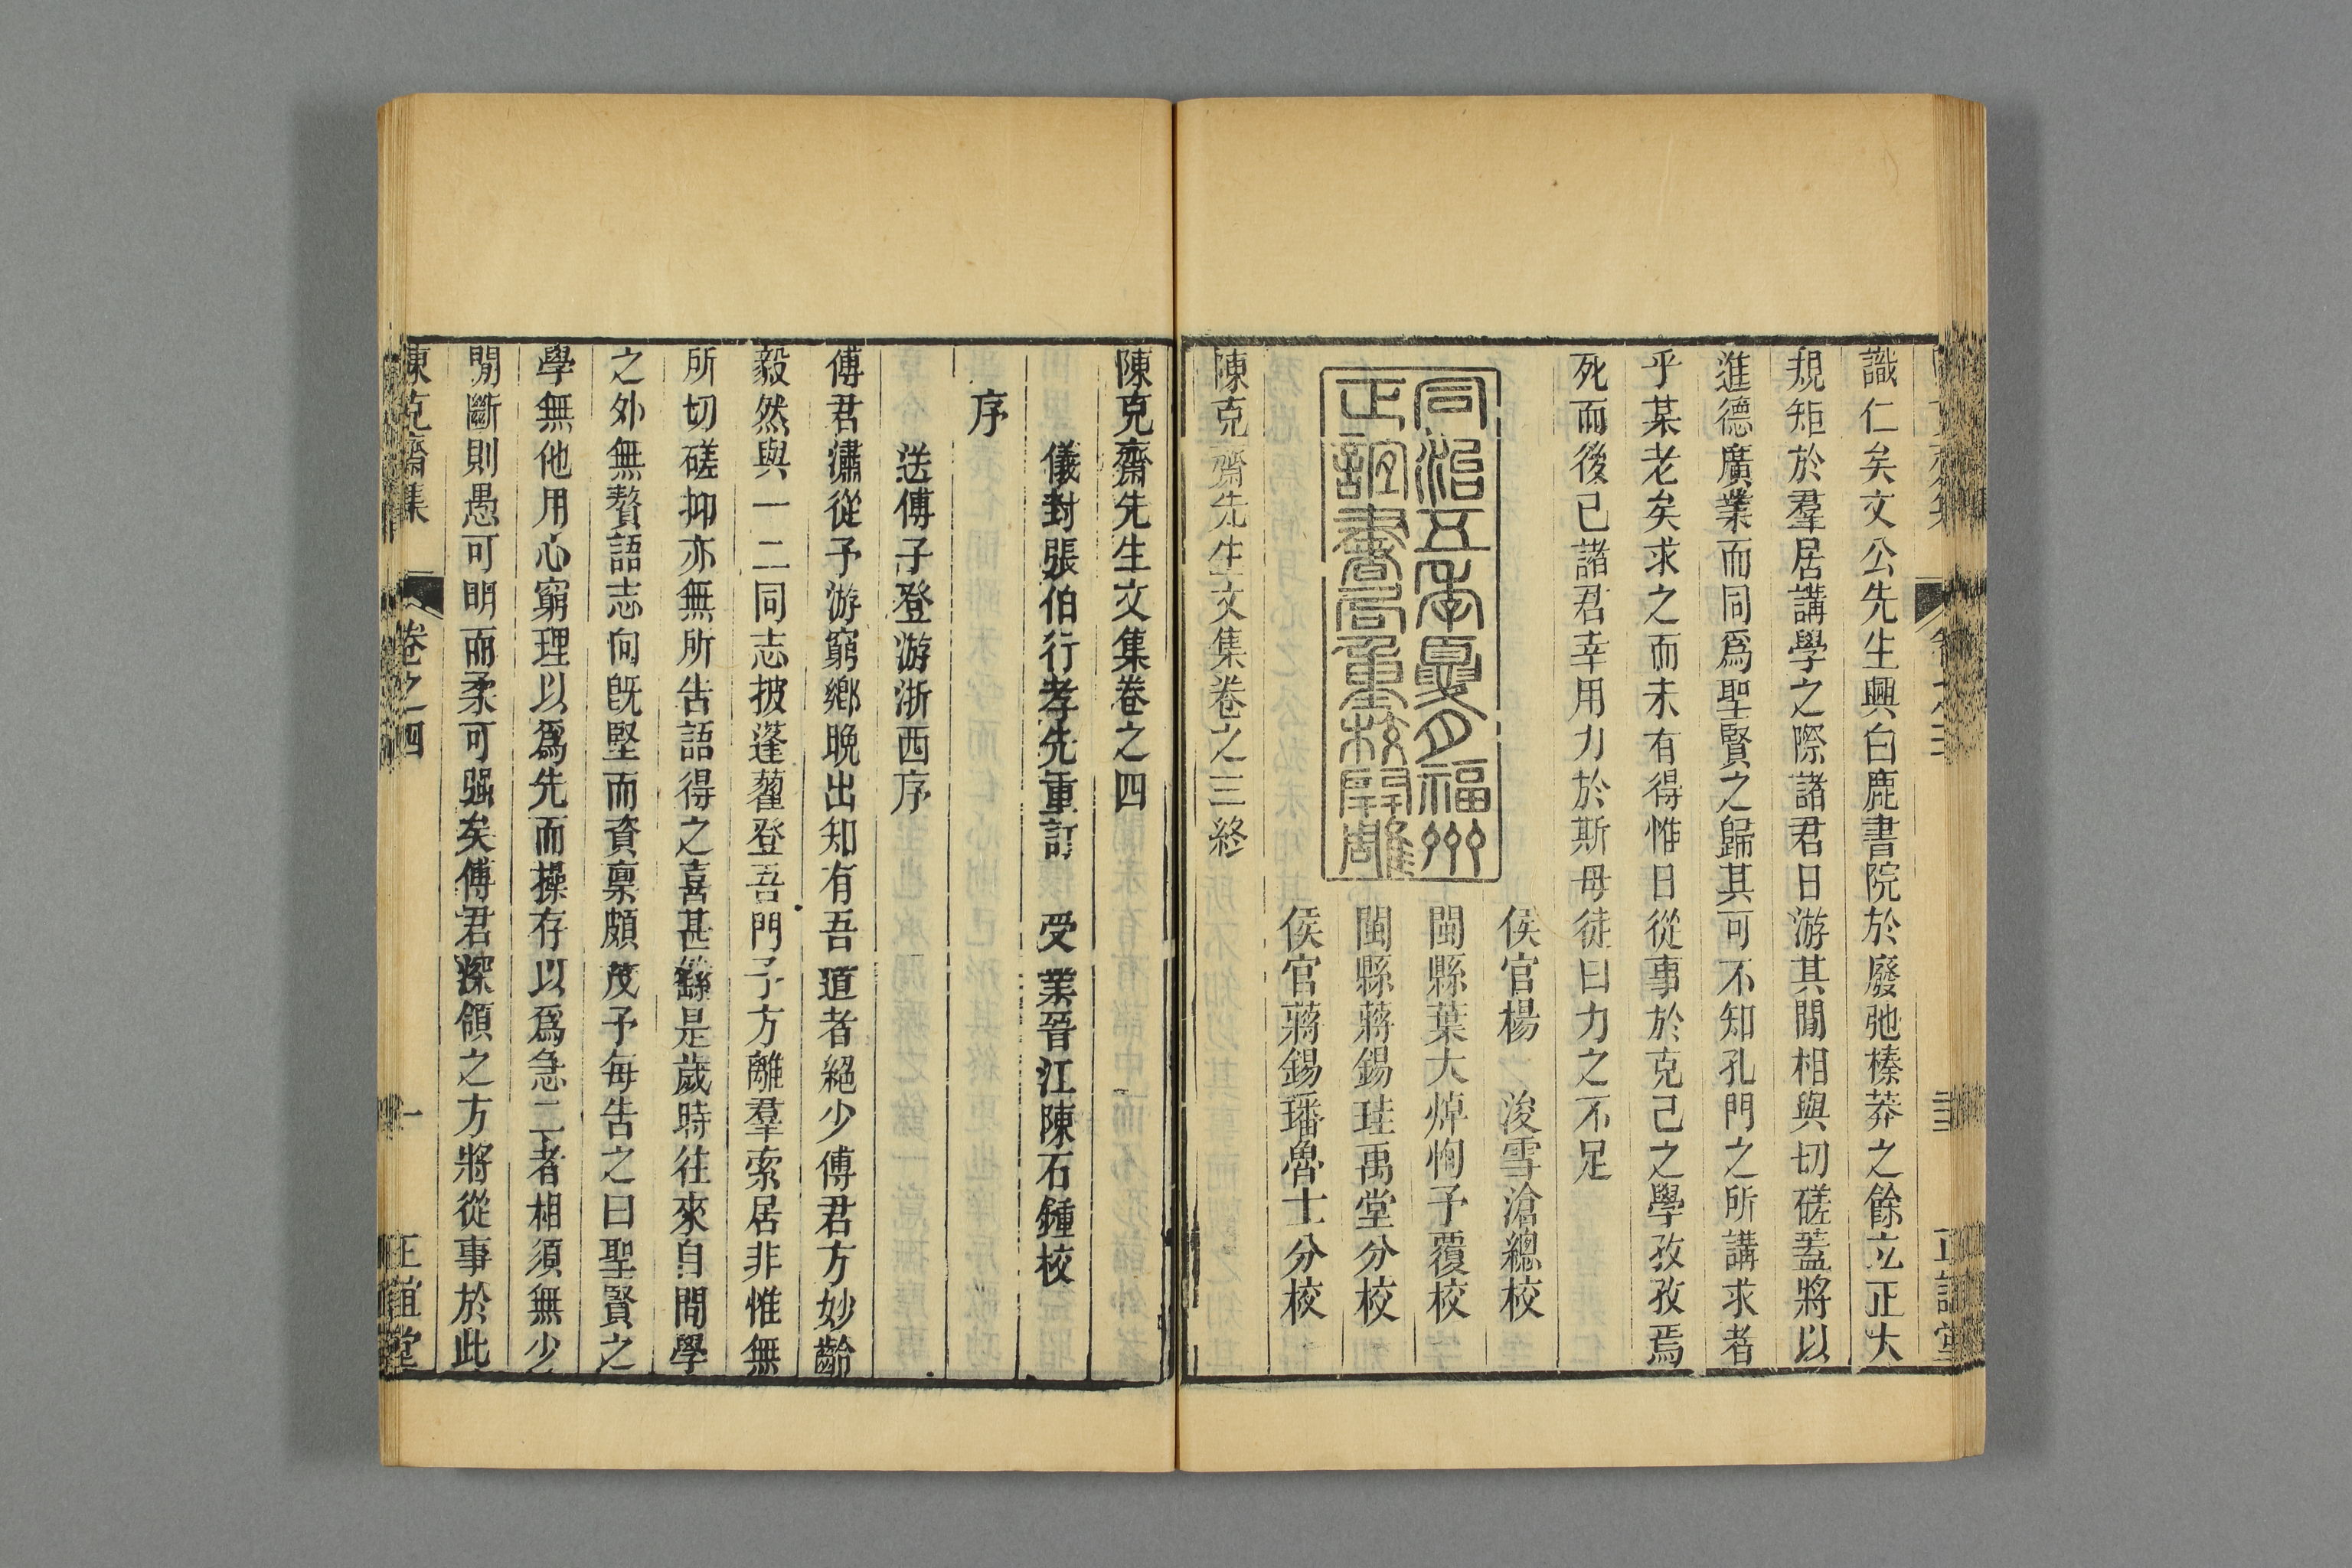 識仁矣文公先生興白鹿書院於廢弛榛莽之餘立正大
規矩於羣居講學之際諸君日游其閒相與切磋蓋將以
進德廣業而同爲聖賢之歸其可不知孔門之所講求者
乎某老矣求之而未有得惟日從事於克己之學孜孜焉
死而後已諸君幸用力於斯毋徒曰力之不足
侯官楊 浚雪滄總校
閩縣葉大焯恂予覆校
同治五年夏月福州
正誼書局重校開雕
閩縣蔣錫珪禹堂分校
侯官蔣錫璠魯士分校
陳克齋先生文集卷之三終
陳克齋先生文集卷之四
儀封張伯行孝先重訂 受業晉江陳石鍾校
序
送傅子登游浙西序
傅君潚從予游窮鄉晚出知有吾道者絕少傅君方妙齡
毅然與一二同志披蓬藋登吾門予方離羣索居非惟無
所切磋抑亦無所告語得之喜甚繇是歲時往來自問學
之外無贅語志向旣堅而資稟頗茂予每告之曰聖賢之
學無他用心窮理以爲先而操存以爲急二者相須無少
閒斷則愚可明而柔可强矣傅君深領之方將從事於此
陳克齋集 卷之四 一 正誼堂